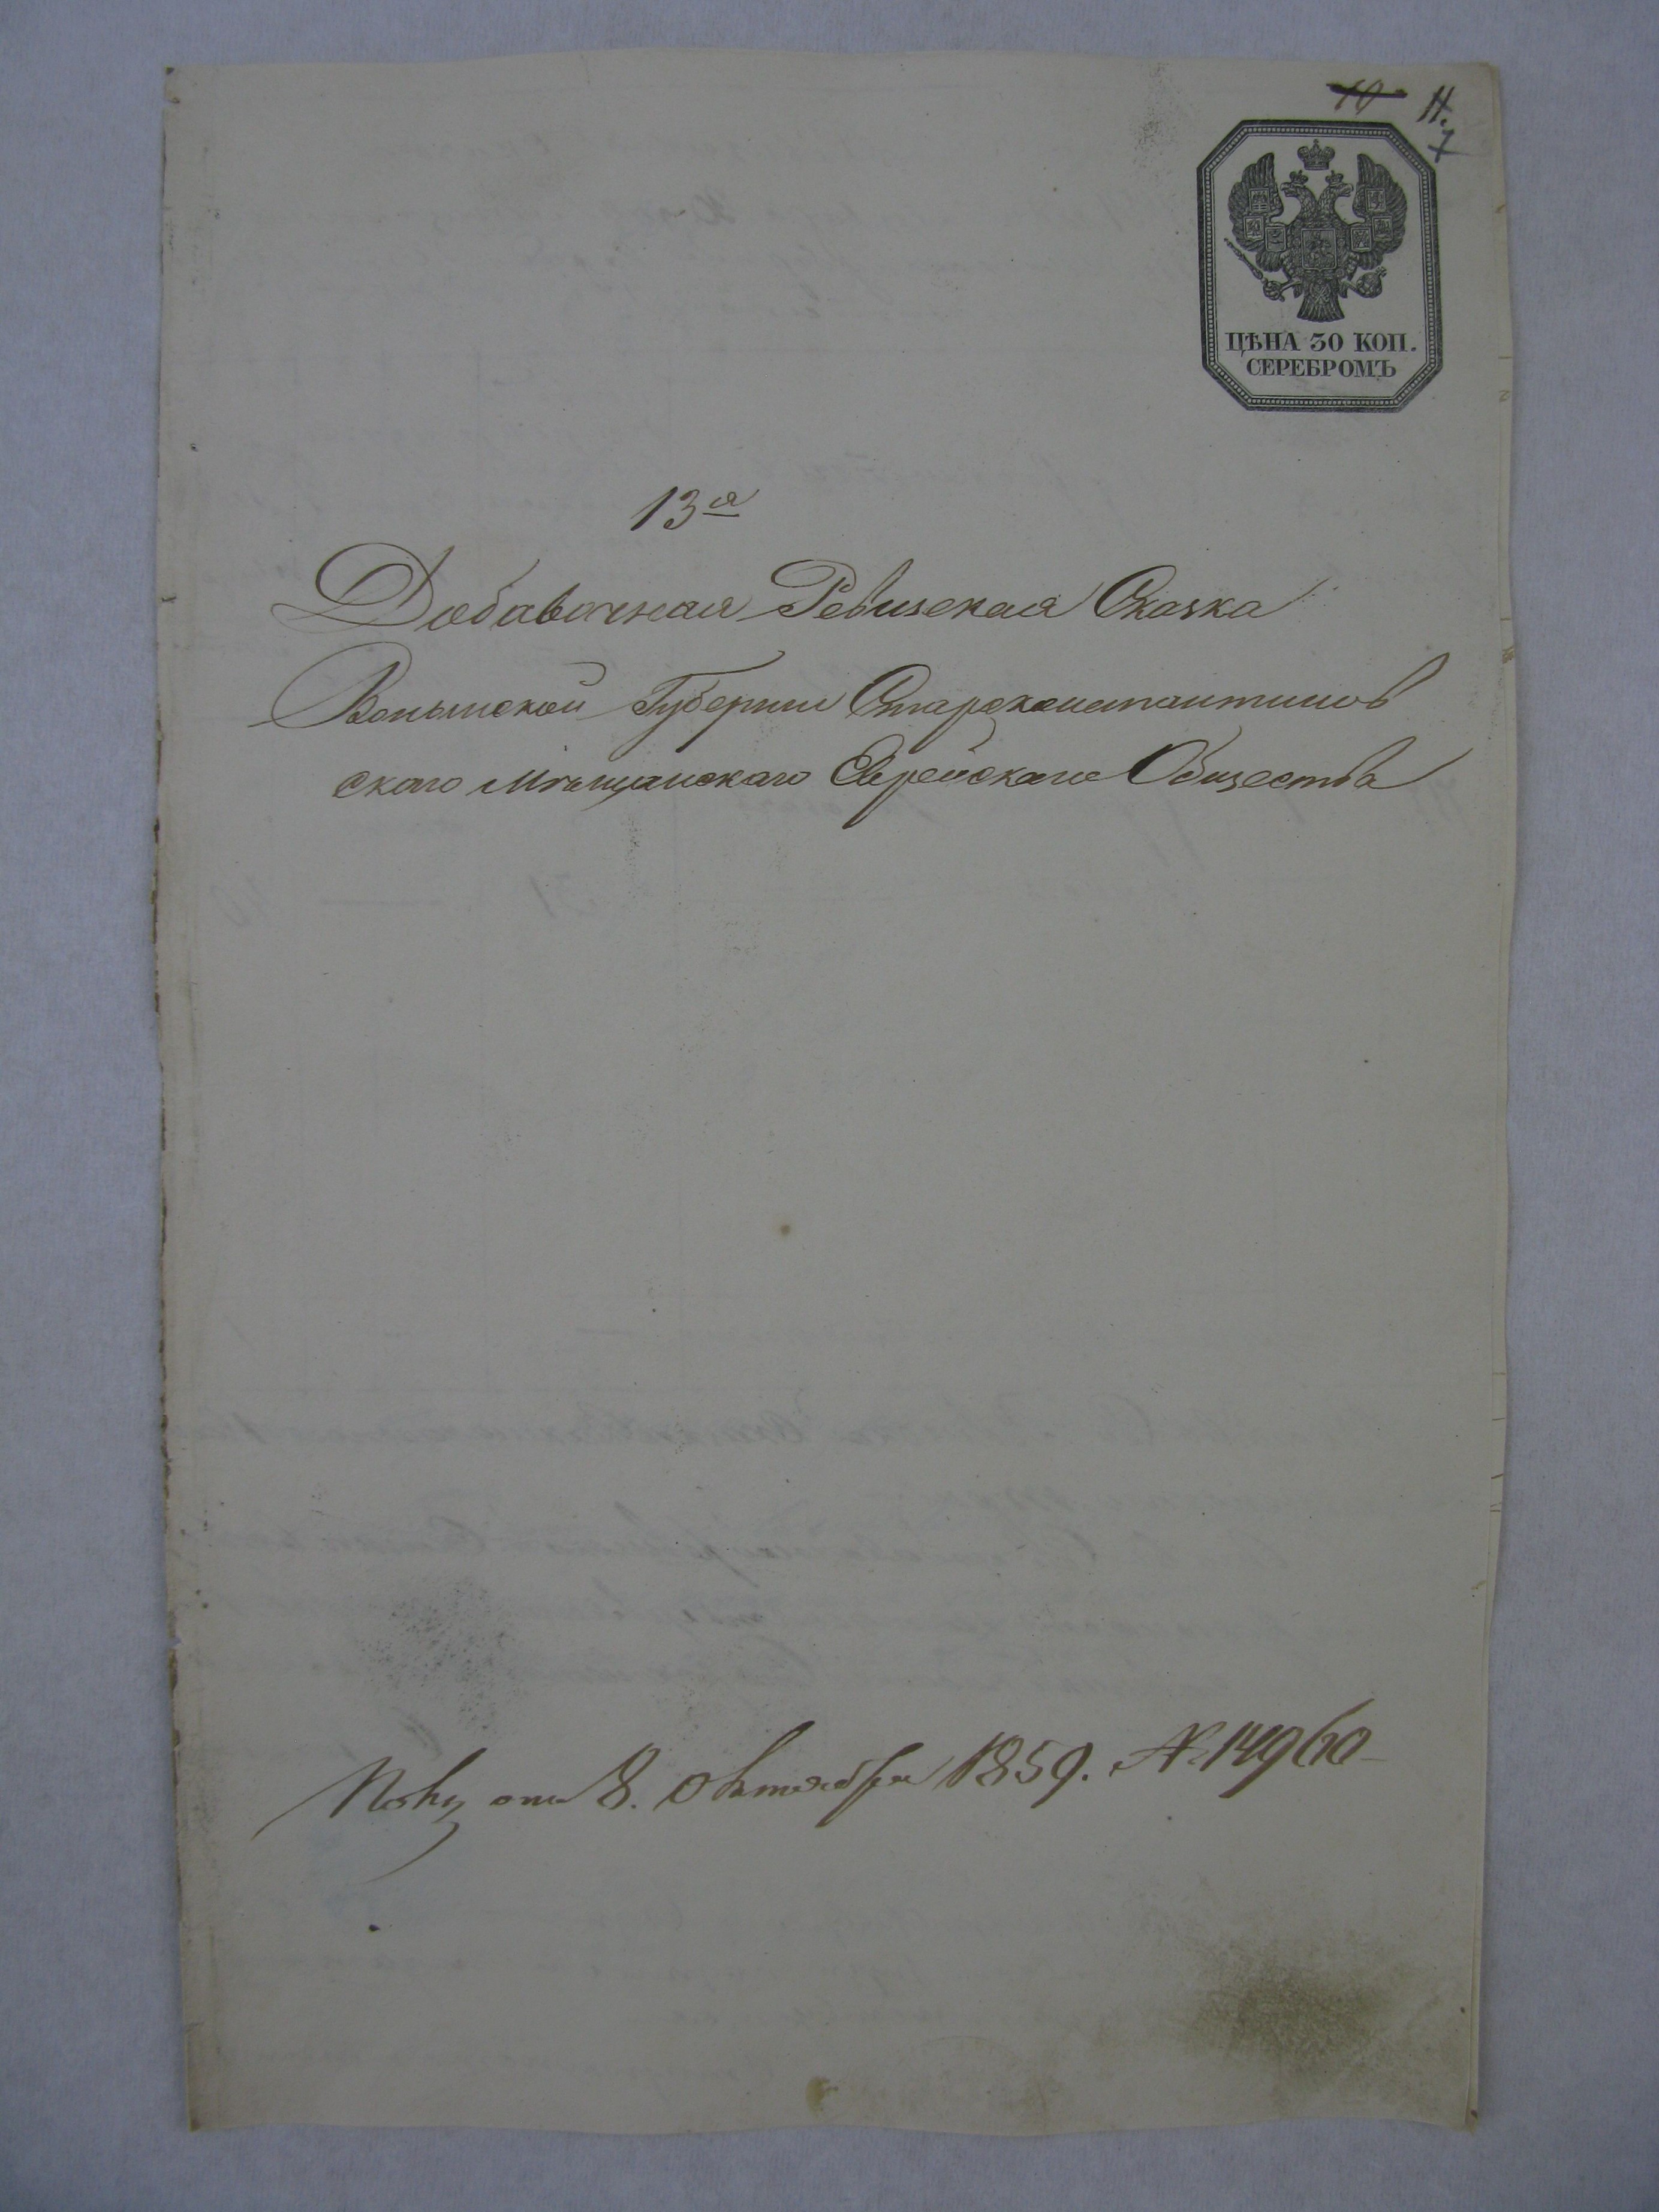 10 11.
7
ЦѢНА 30 КОП.
СЕРЕБРОМЪ
13ая
Добавочная Ревизская Сказка
Волынской Губернии Староконстантинов
ского Мѣщанскаго Еврейскаго Общества
от 8. Октября 1859. № 14960